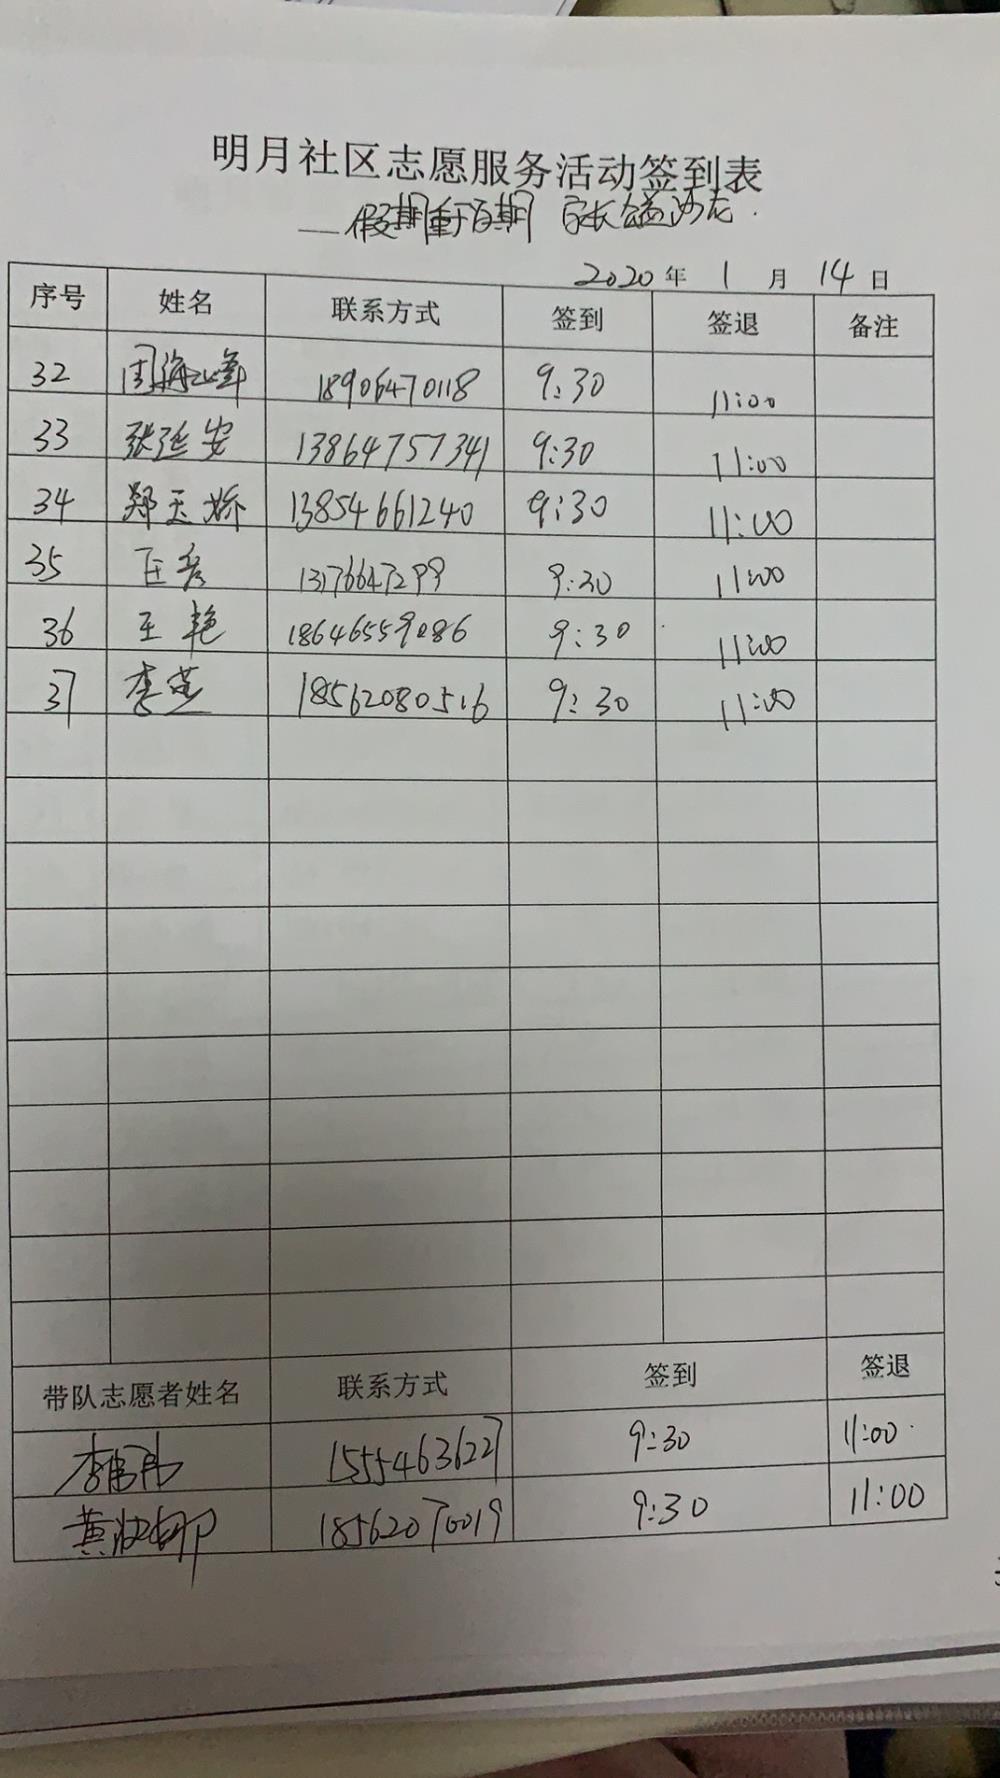 明月社区志愿服务活动签到表
——假期重于百期 家长公益沙龙
2020年 1月 14日
序号 姓名 联系方式 签到 签退 备注
32 周海峰 18906470118 9:30 11:00
33 张延安 13864757341 9:30 11:00
34 郑玉娇 13854661240 9:30 11:00
35 13766647299 9:30 11:00
36 王艳 18646559086 9:30 11:00
37 李莲 18562080516 9:30 11:00
带队志愿者姓名 联系方式 签到 签退
李 15554636227 9:30 11:00
黄 18562070019 9:30 11:00